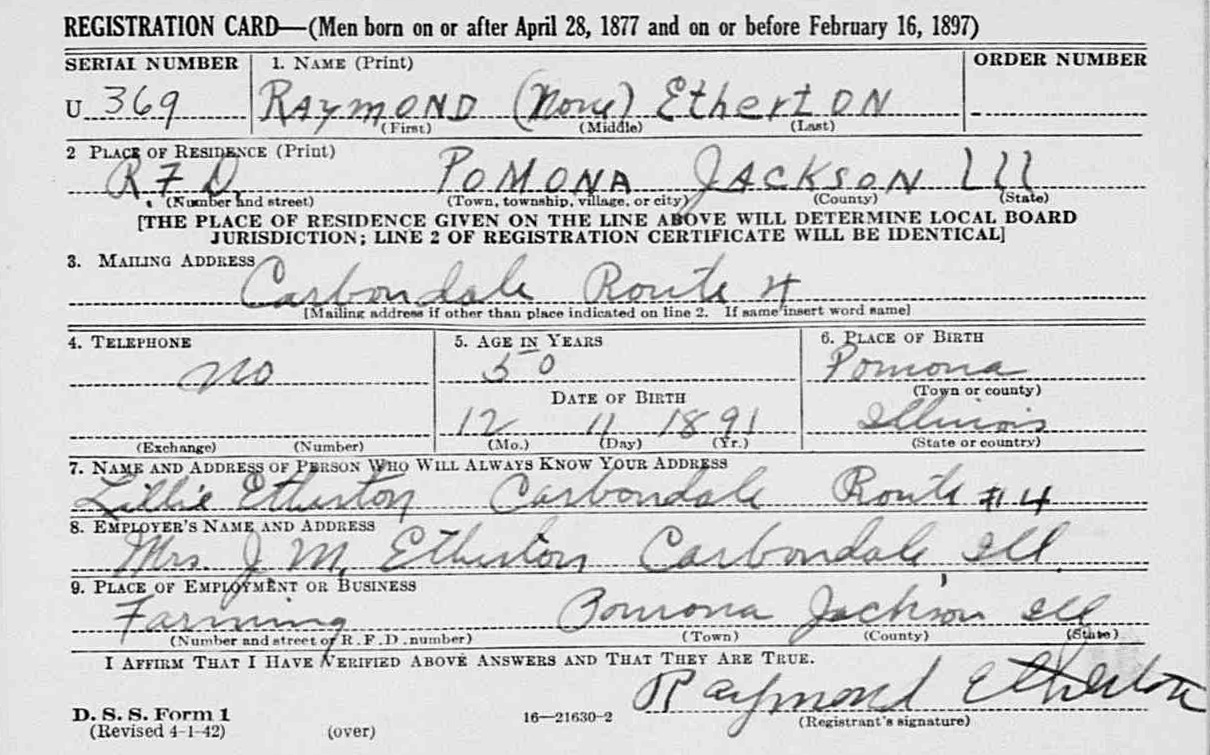 REGISTRATION CARD—(Men born on or after April 28, 1877 and on or before February 16, 1897)
SERIAL NUMBER 1. NAME (Print) ORDER NUMBER
U 369 RAYMOND (None) EthertON
(First) (Middle) (Last)
2 PLACE OF RESIDENCE (Print)
R F D. POMONA JACKSON Ill
(Number and street) (Town, township, village, or city) (County) (State)
[THE PLACE OF RESIDENCE GIVEN ON THE LINE ABOVE WILL DETERMINE LOCAL BOARD
JURISDICTION; LINE 2 OF REGISTRATION CERTIFICATE WILL BE IDENTICAL]
3. MAILING ADDRESS
Carbondale Route 4
[Mailing address if other than place indicated on line 2. If same insert word same]
4. TELEPHONE 5. AGE IN YEARS 6. PLACE OF BIRTH
no 50 Pomona
DATE OF BIRTH (Town or county)
12 11 1891 Illinois
(Exchange) (Number) (Mo.) (Day) (Yr.) (State or country)
7. NAME AND ADDRESS OF PERSON WHO WILL ALWAYS KNOW YOUR ADDRESS
Lillie Etherton Carbondale Route #4
8. EMPLOYER'S NAME AND ADDRESS
Mrs. J. M. Etherton Carbondale, Ill.
9. PLACE OF EMPLOYMENT OR BUSINESS
Farming Pomona Jackson Ill
(Number and street or R. F. D. number) (Town) (County) (State)
I AFFIRM THAT I HAVE VERIFIED ABOVE ANSWERS AND THAT THEY ARE TRUE.
Raymond Etherton
D. S. S. Form 1 16—21630-2 (Registrant's signature)
(Revised 4-1-42) (over)